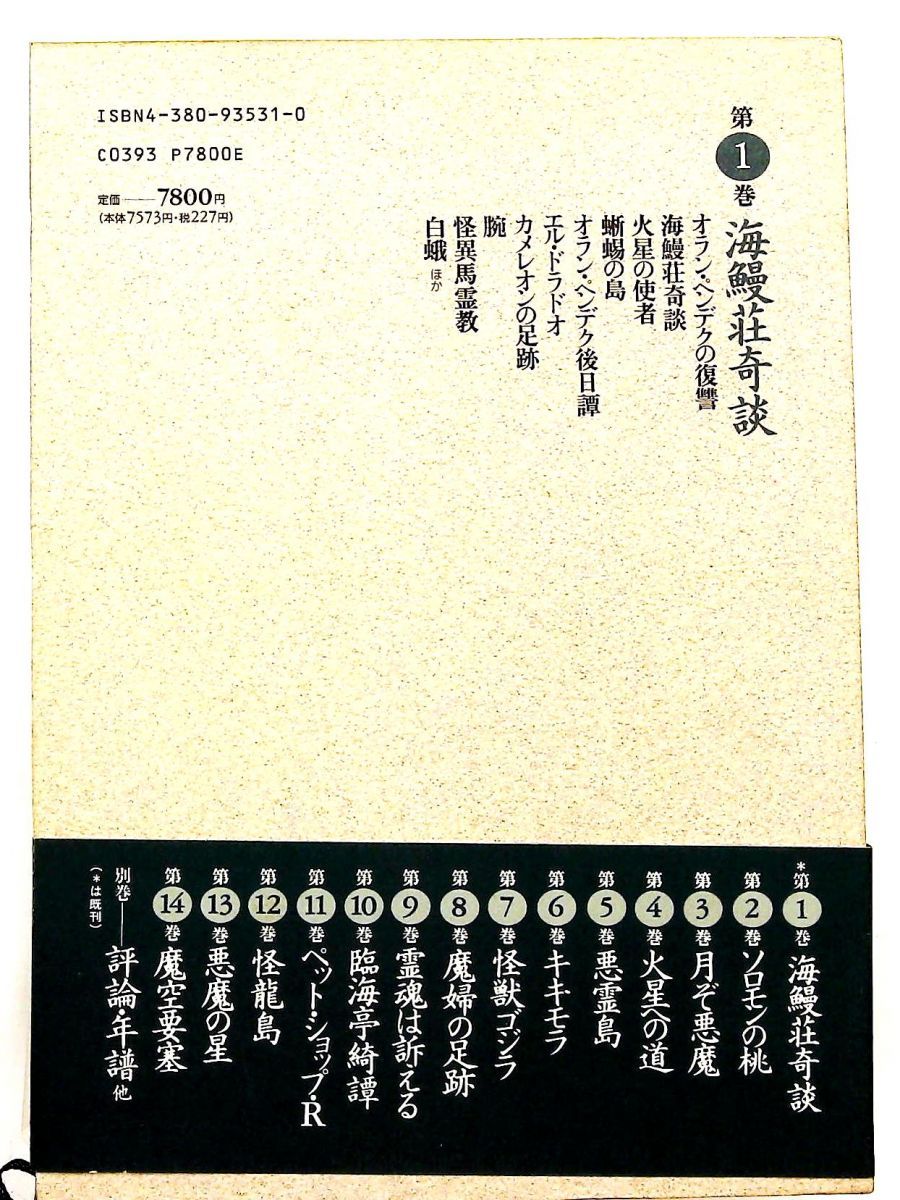 ISBN4-380-93531-0
C0393 P7800E
定価――7800円
（本体7573円・税227円）
第1巻 海鰻荘奇談
オラン・ペンデクの復讐
海鰻荘奇談
火星の使者
蜥蜴の島
オラン・ペンデク後日譚
エル・ドラドオ
カメレオンの足跡
腕
怪異馬霊教
白蛾 ほか
*第1巻 海鰻荘奇談
第2巻 ソロモンの桃
第3巻 月ぞ悪魔
第4巻 火星への道
第5巻 悪霊島
第6巻 キキモラ
第7巻 怪獣ゴジラ
第8巻 魔婦の足跡
第9巻 霊魂は訴える
第10巻 臨海亭綺譚
第11巻 ペット・ショップ・R
第12巻 怪龍島
第13巻 悪魔の星
第14巻 魔空要塞
別巻――評論・年譜 他
（*は既刊）